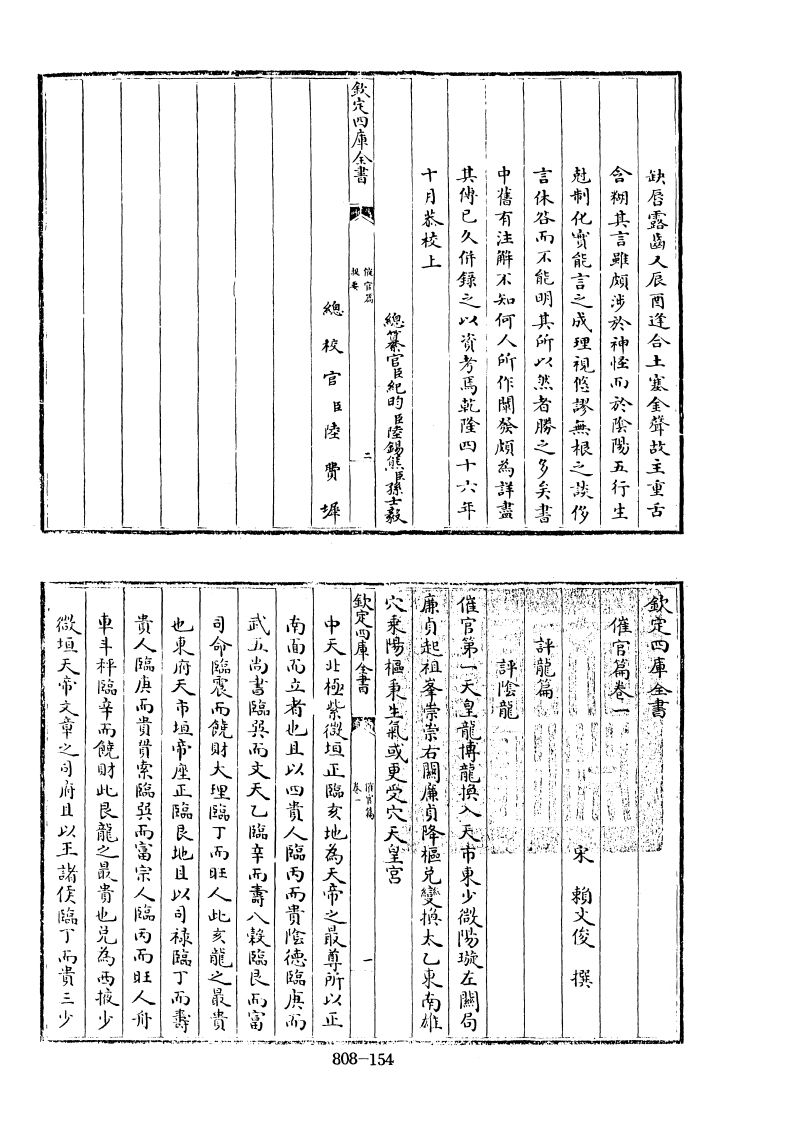 缺唇露齒又辰酉逢合土塞金聲故主重舌
含糊其言雖頗涉於神怪而於陰陽五行生
尅制化實能言之成理視悠謬無根之談侈
言休咎而不能明其所以然者勝之多矣書
中舊有注解不知何人所作闡發頗為詳盡
其傳已久併錄之以資考焉乾隆四十六年
十月恭校上
總纂官臣紀昀臣陸錫熊臣孫士毅
欽定四庫全書
催官篇
提要
二
總校官臣陸費墀
欽定四庫全書
催官篇卷一
宋 賴文俊 撰
評龍篇
評陰龍
催官第一天皇龍博龍換入天市東少微陽璇左關局
廉貞起祖峯崇崇右關廉貞降樞兌變換太乙東南雄
穴乘陽樞秉生氣或更受穴天皇宮
欽定四庫全書
催官篇
卷一
一
中天北極紫微垣正臨亥地為天帝之最尊所以正
南面而立者也且以四貴人臨丙而貴陰德臨庚而
武五尚書臨巽而文天乙臨辛而壽八穀臨艮而富
司命臨震而饒財大理臨丁而旺人此亥龍之最貴
也東府天市垣帝座正臨艮地且以司祿臨丁而壽
貴人臨庚而貴貫索臨巽而富宗人臨丙而旺人舟
車斗秤臨辛而饒財此艮龍之最貴也兌為西掖少
微垣天帝文章之司府且以王諸侯臨丁而貴三少
808-154